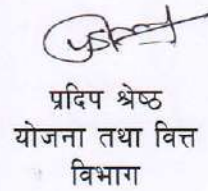 प्रदिप श्रेष्ठ
योजना तथा वित्त
विभाग